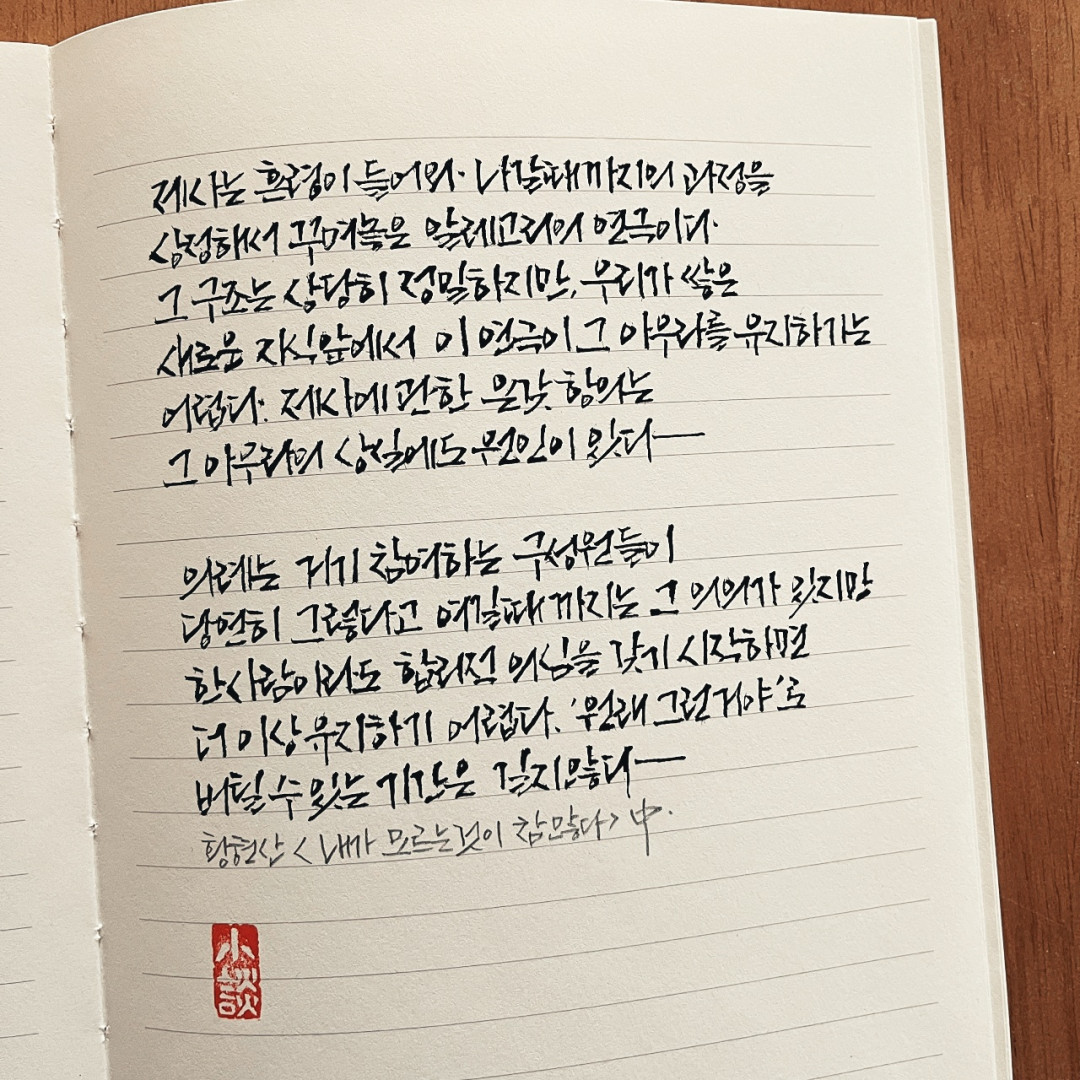 제사는 혼령이 들어와. 나갈때까지의 과정을
상정해서 꾸며놓은 알레고리의 연극이다.
그 구조는 상당히 정밀하지만, 우리가 쌓은
새로운 지식앞에서 이 연극이 그 아우라를 유지하기는
어렵다. 제사에 관한 온갖 항의는
그 아우라의 상실에도 원인이 있다—
의례는 거기 참여하는 구성원들이
당연히 그렇다고 여길때까지는 그 의의가 있지만
한사람이라도 합리적 의심을 갖기 시작하면
더 이상 유지하기 어렵다. '원래 그런거야'로
버틸 수 있는 기간은 길지않다—
황현산 <내가 모르는것이 참많다> 中.
小談